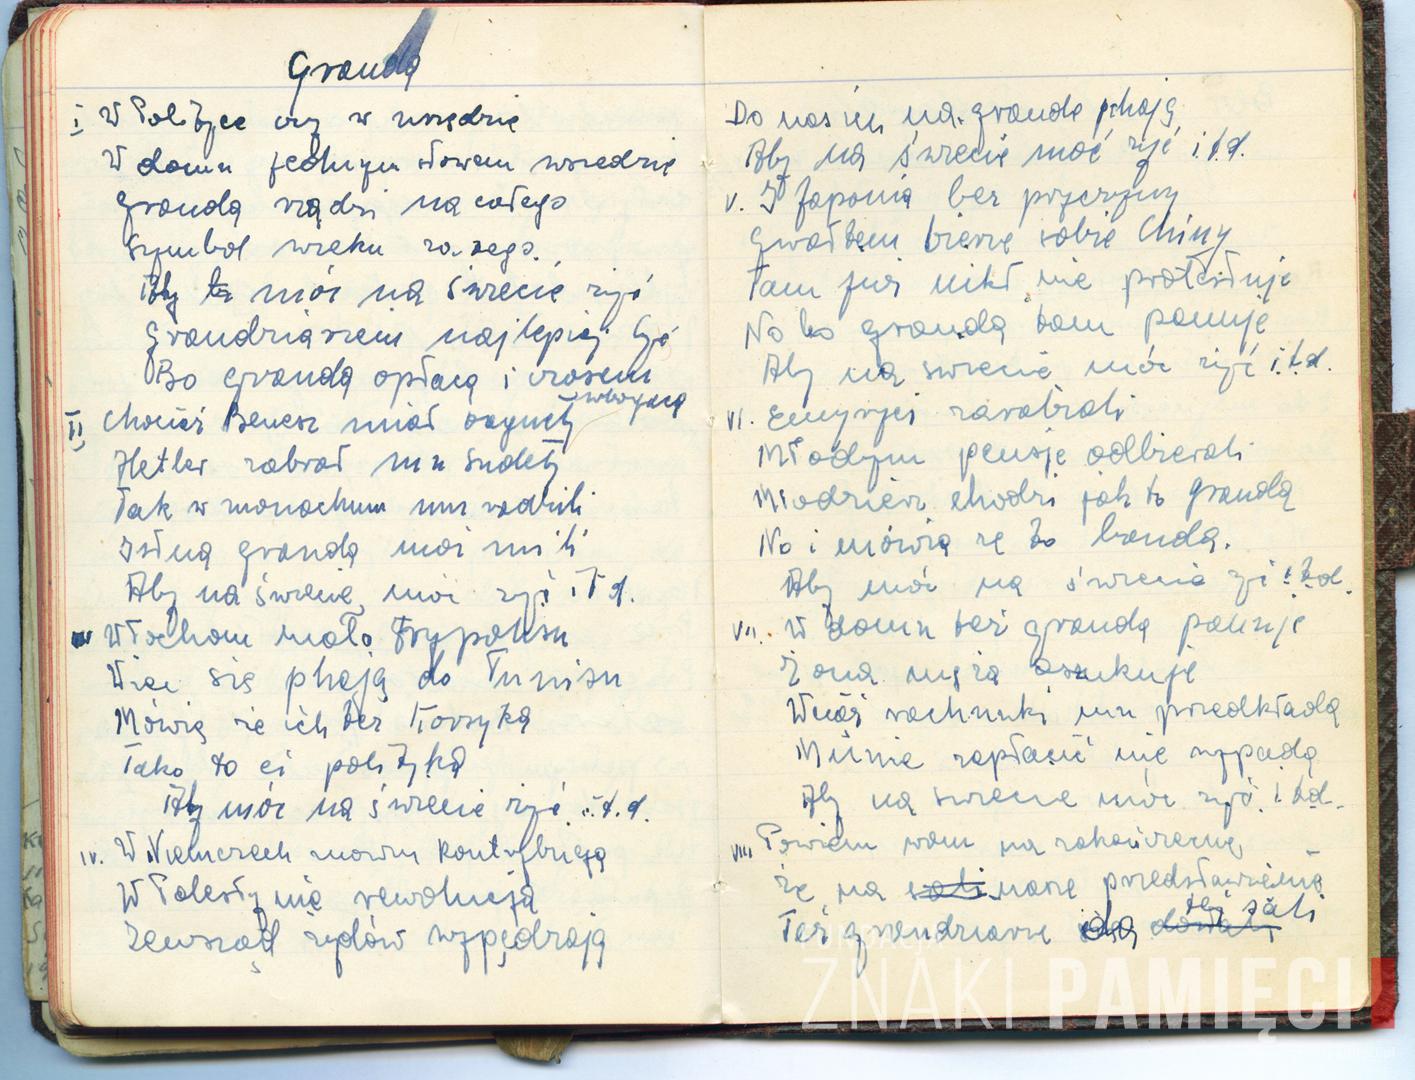 Granda
I W Polityce czy w urzędzie
W domu jednym słowem wszędzie
Granda rządzi na całego
symbol wieku
Aby to móc na świecie żyć
Grandziarzem najlepiej być
Bo granda opłaca i czasem
wzbogaca
II Chociaż Benesz miał
Hetler zabrał mu Sudety
Tak w monachium mu radzili
Istna granda moi mili
Aby na świecie móc żyć i T d.
III Włochom mało
Więc się phają do Tunisu
Mówią że ich też Korsyka
Taka to ci polityka
Aby móc na świecie żyć i.t.d.
IV. W Niemczech znowu kontrybucja
W Palestynie rewolucja
Zewsząd żydów wypędzają
Do nas ich na grande phają
Aby na świecie móc żyć i.t.d.
V. I Japonia bez przyczyny
Gwałtem bierze sobie Chiny
Tam już nikt nie protestuje
No bo granda tam panuje
Aby na świecie móc żyć i.t.d.
VI. Emeryci
Młodym pensje odbierali
Młodzież chodzi jak to granda
No i mówią że to banda.
Aby móc na świecie żyć i.t.d.
VII. W domu też granda panuje
Żona męża oszukuje
Wciąż rachunki mu przedkłada
Musie zapłacić nie wypada
Aby na świecie móc żyć i.t.d.
VIII Powiem wam na zakończenie
że na sali nasze przedstawienie
tej sali
Też grandziarze
FUNDACJA
ZNAKI PAMIĘCI